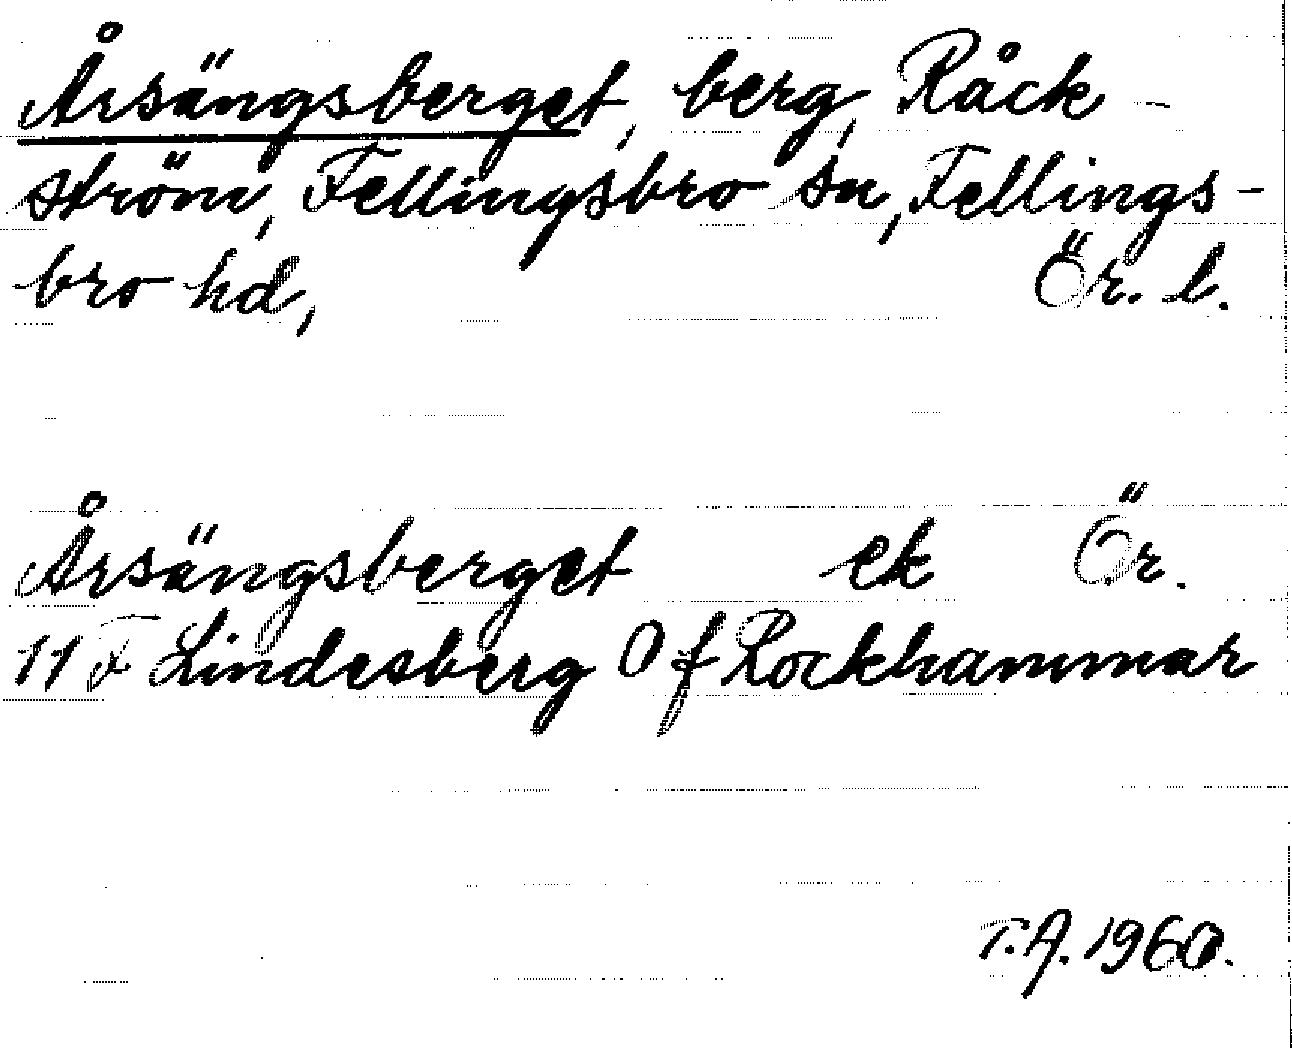 Årsängsberget, berg, Råck-
ström, Fellingsbro sn, Fellings-
bro hd, Ör. l.
Årsängsberget ek Ör.
11 F Lindesberg O f Rockhammar
T.A. 1960.